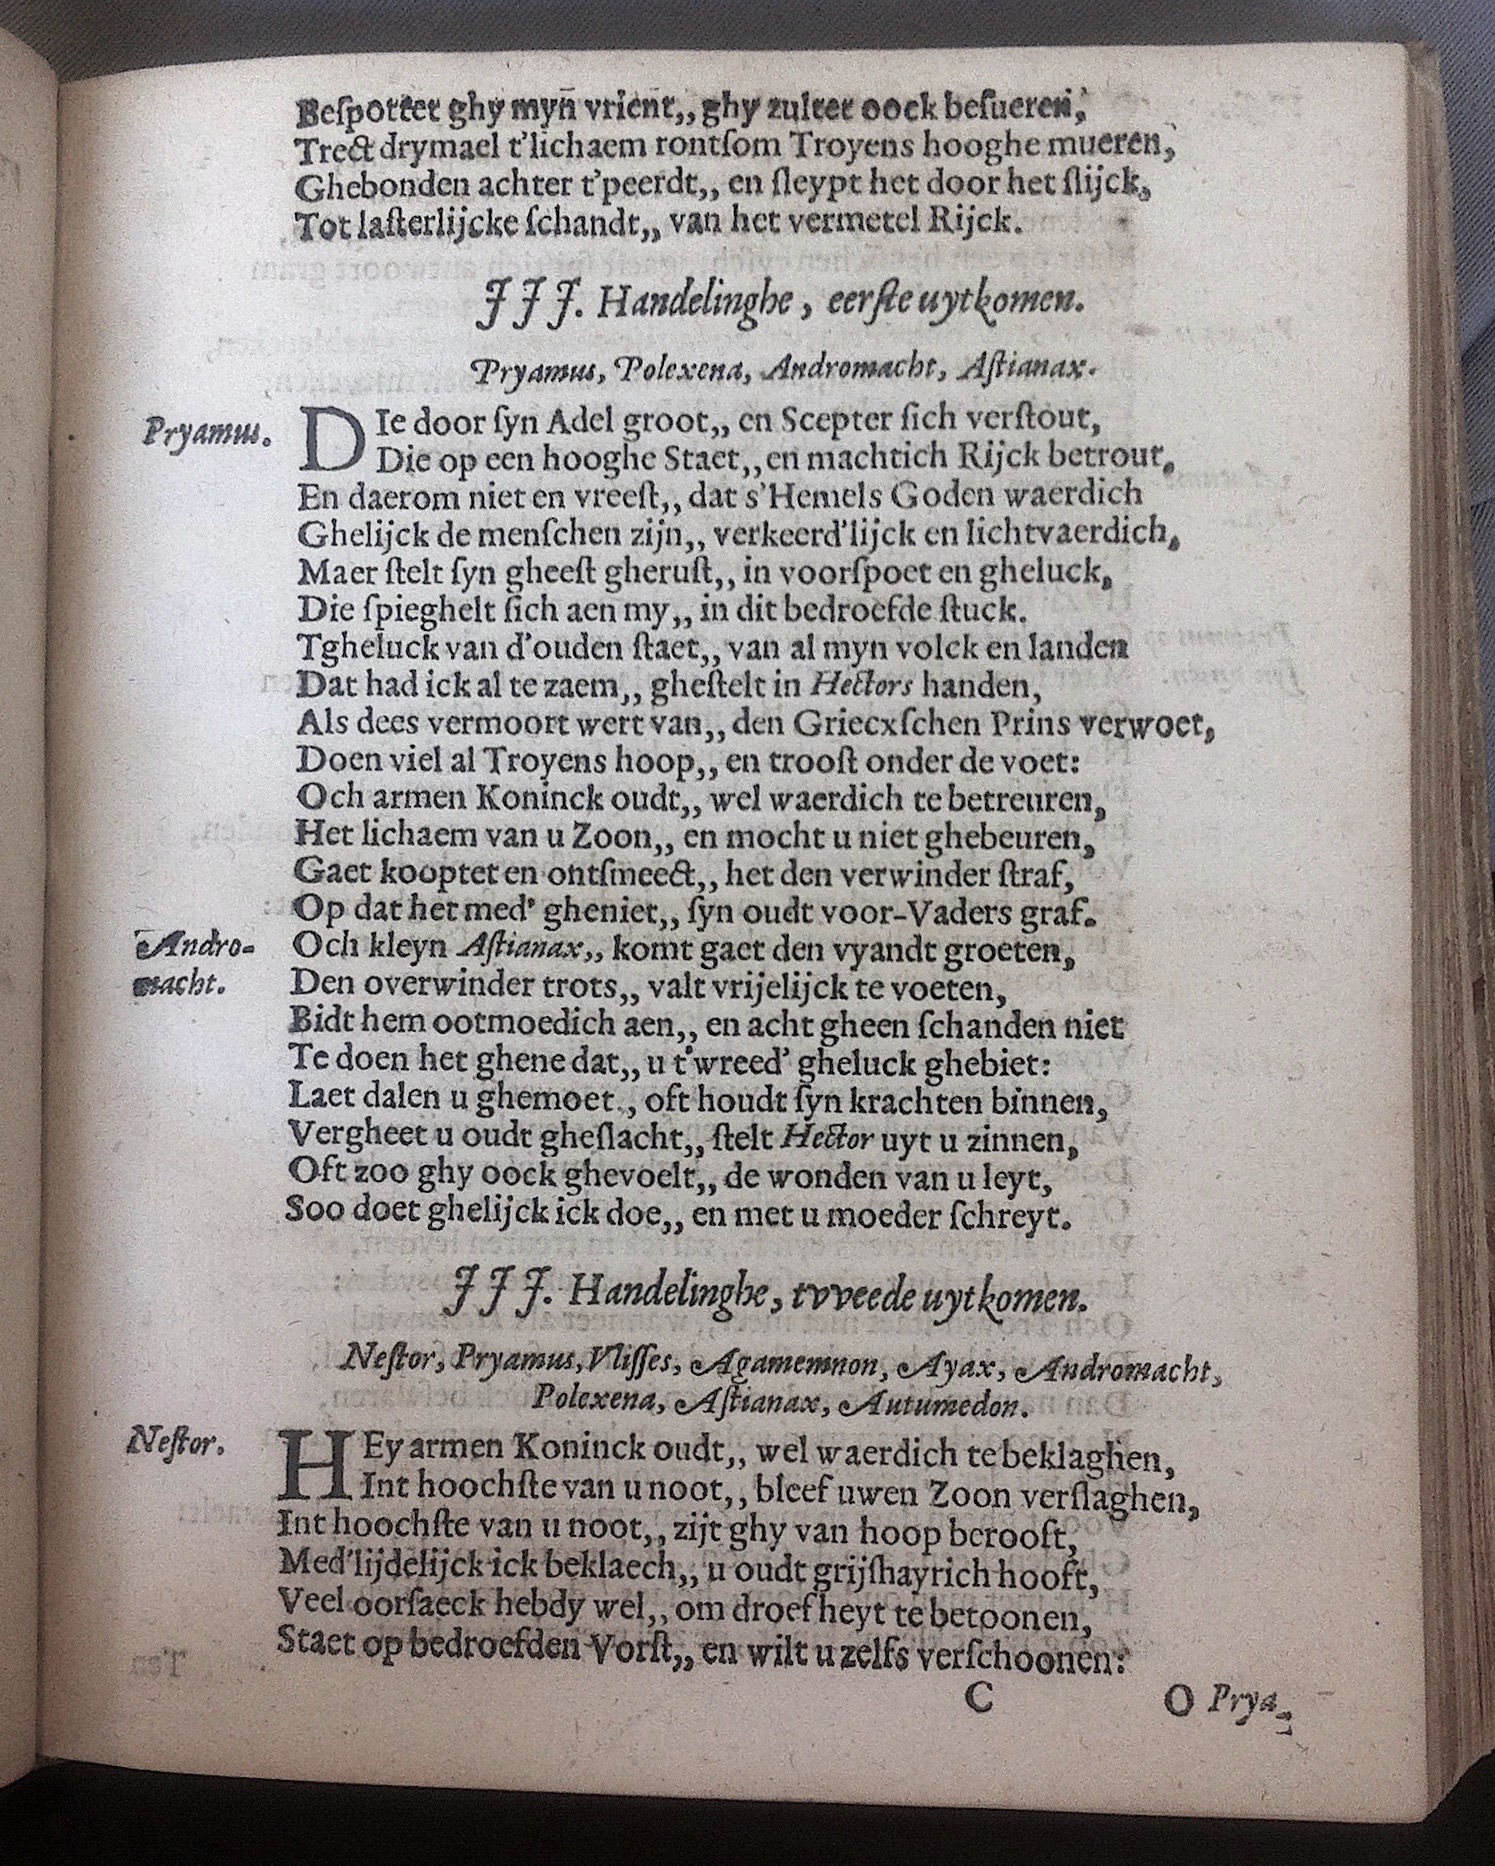 Beſpottet ghy mijn vrient,, ghy zultet oock beſueren,
Trect drymael t'lichaem rontſom Troyens hooghe mueren,
Ghebonden achter t'peerdt,, en ſleypt het door het ſlijck,
Tot laſterlijcke ſchandt,, van het vermetel Rijck.
III. Handelinghe, eerſte uytkomen.
Pryamus, Polexena, Andromacht, Aſtianax.
Pryamus. DIe door ſyn Adel groot,, en Scepter ſich verſtout,
Die op een hooghe Staet,, en machtich Rijck betrout,
En daerom niet en vreeſt,, dat s'Hemels Goden waerdich
Ghelijck de menſchen zijn,, verkeerd'lijck en lichtvaerdich,
Maer ſtelt ſyn gheeſt gheruſt,, in voorſpoet en gheluck,
Die ſpieghelt ſich aen my,, in dit bedroefde ſtuck.
Tgheluck van d'ouden ſtaet,, van al myn volck en landen
Dat had ick al te zaem,, gheſtelt in Hectors handen,
Als dees vermoort wert van,, den Griecxſchen Prins verwoet,
Doen viel al Troyens hoop,, en trooſt onder de voet:
Och armen Koninck oudt,, wel waerdich te betreuren,
Het lichaem van u Zoon,, en mocht u niet ghebeuren,
Gaet kooptet en ontſmeect,, het den verwinder ſtraf,
Op dat het med' gheniet,, ſyn oudt voor-Vaders graf.
Andro- Och kleyn Aſtianax,, komt gaet den vyandt groeten,
macht. Den overwinder trots,, valt vrijelijck te voeten,
Bidt hem ootmoedich aen,, en acht gheen ſchanden niet
Te doen het ghene dat,, u t'wreed' gheluck ghebiet:
Laet dalen u ghemoet,, oft houdt ſyn krachten binnen,
Vergheet u oudt gheſlacht,, ſtelt Hector uyt u zinnen,
Oft zoo ghy oock ghevoelt,, de wonden van u leyt,
Soo doet ghelijck ick doe,, en met u moeder ſchreyt.
III. Handelinghe, tvveede uytkomen.
Neſtor, Pryamus, Vliſſes, Agamemnon, Ayax, Andromacht,
Polexena, Aſtianax, Autumedon.
Neſtor. HEy armen Koninck oudt,, wel waerdich te beklaghen,
Int hoochſte van u noot,, bleef uwen Zoon verſlaghen,
Int hoochſte van u noot,, zijt ghy van hoop berooft,
Med'lijdelijck ick beklaech,, u oudt grijſhayrich hooft,
Veel oorſaeck hebdy wel,, om droefheyt te betoonen,
Staet op bedroefden Vorſt,, en wilt u zelfs verſchoonen:
C O Prya-